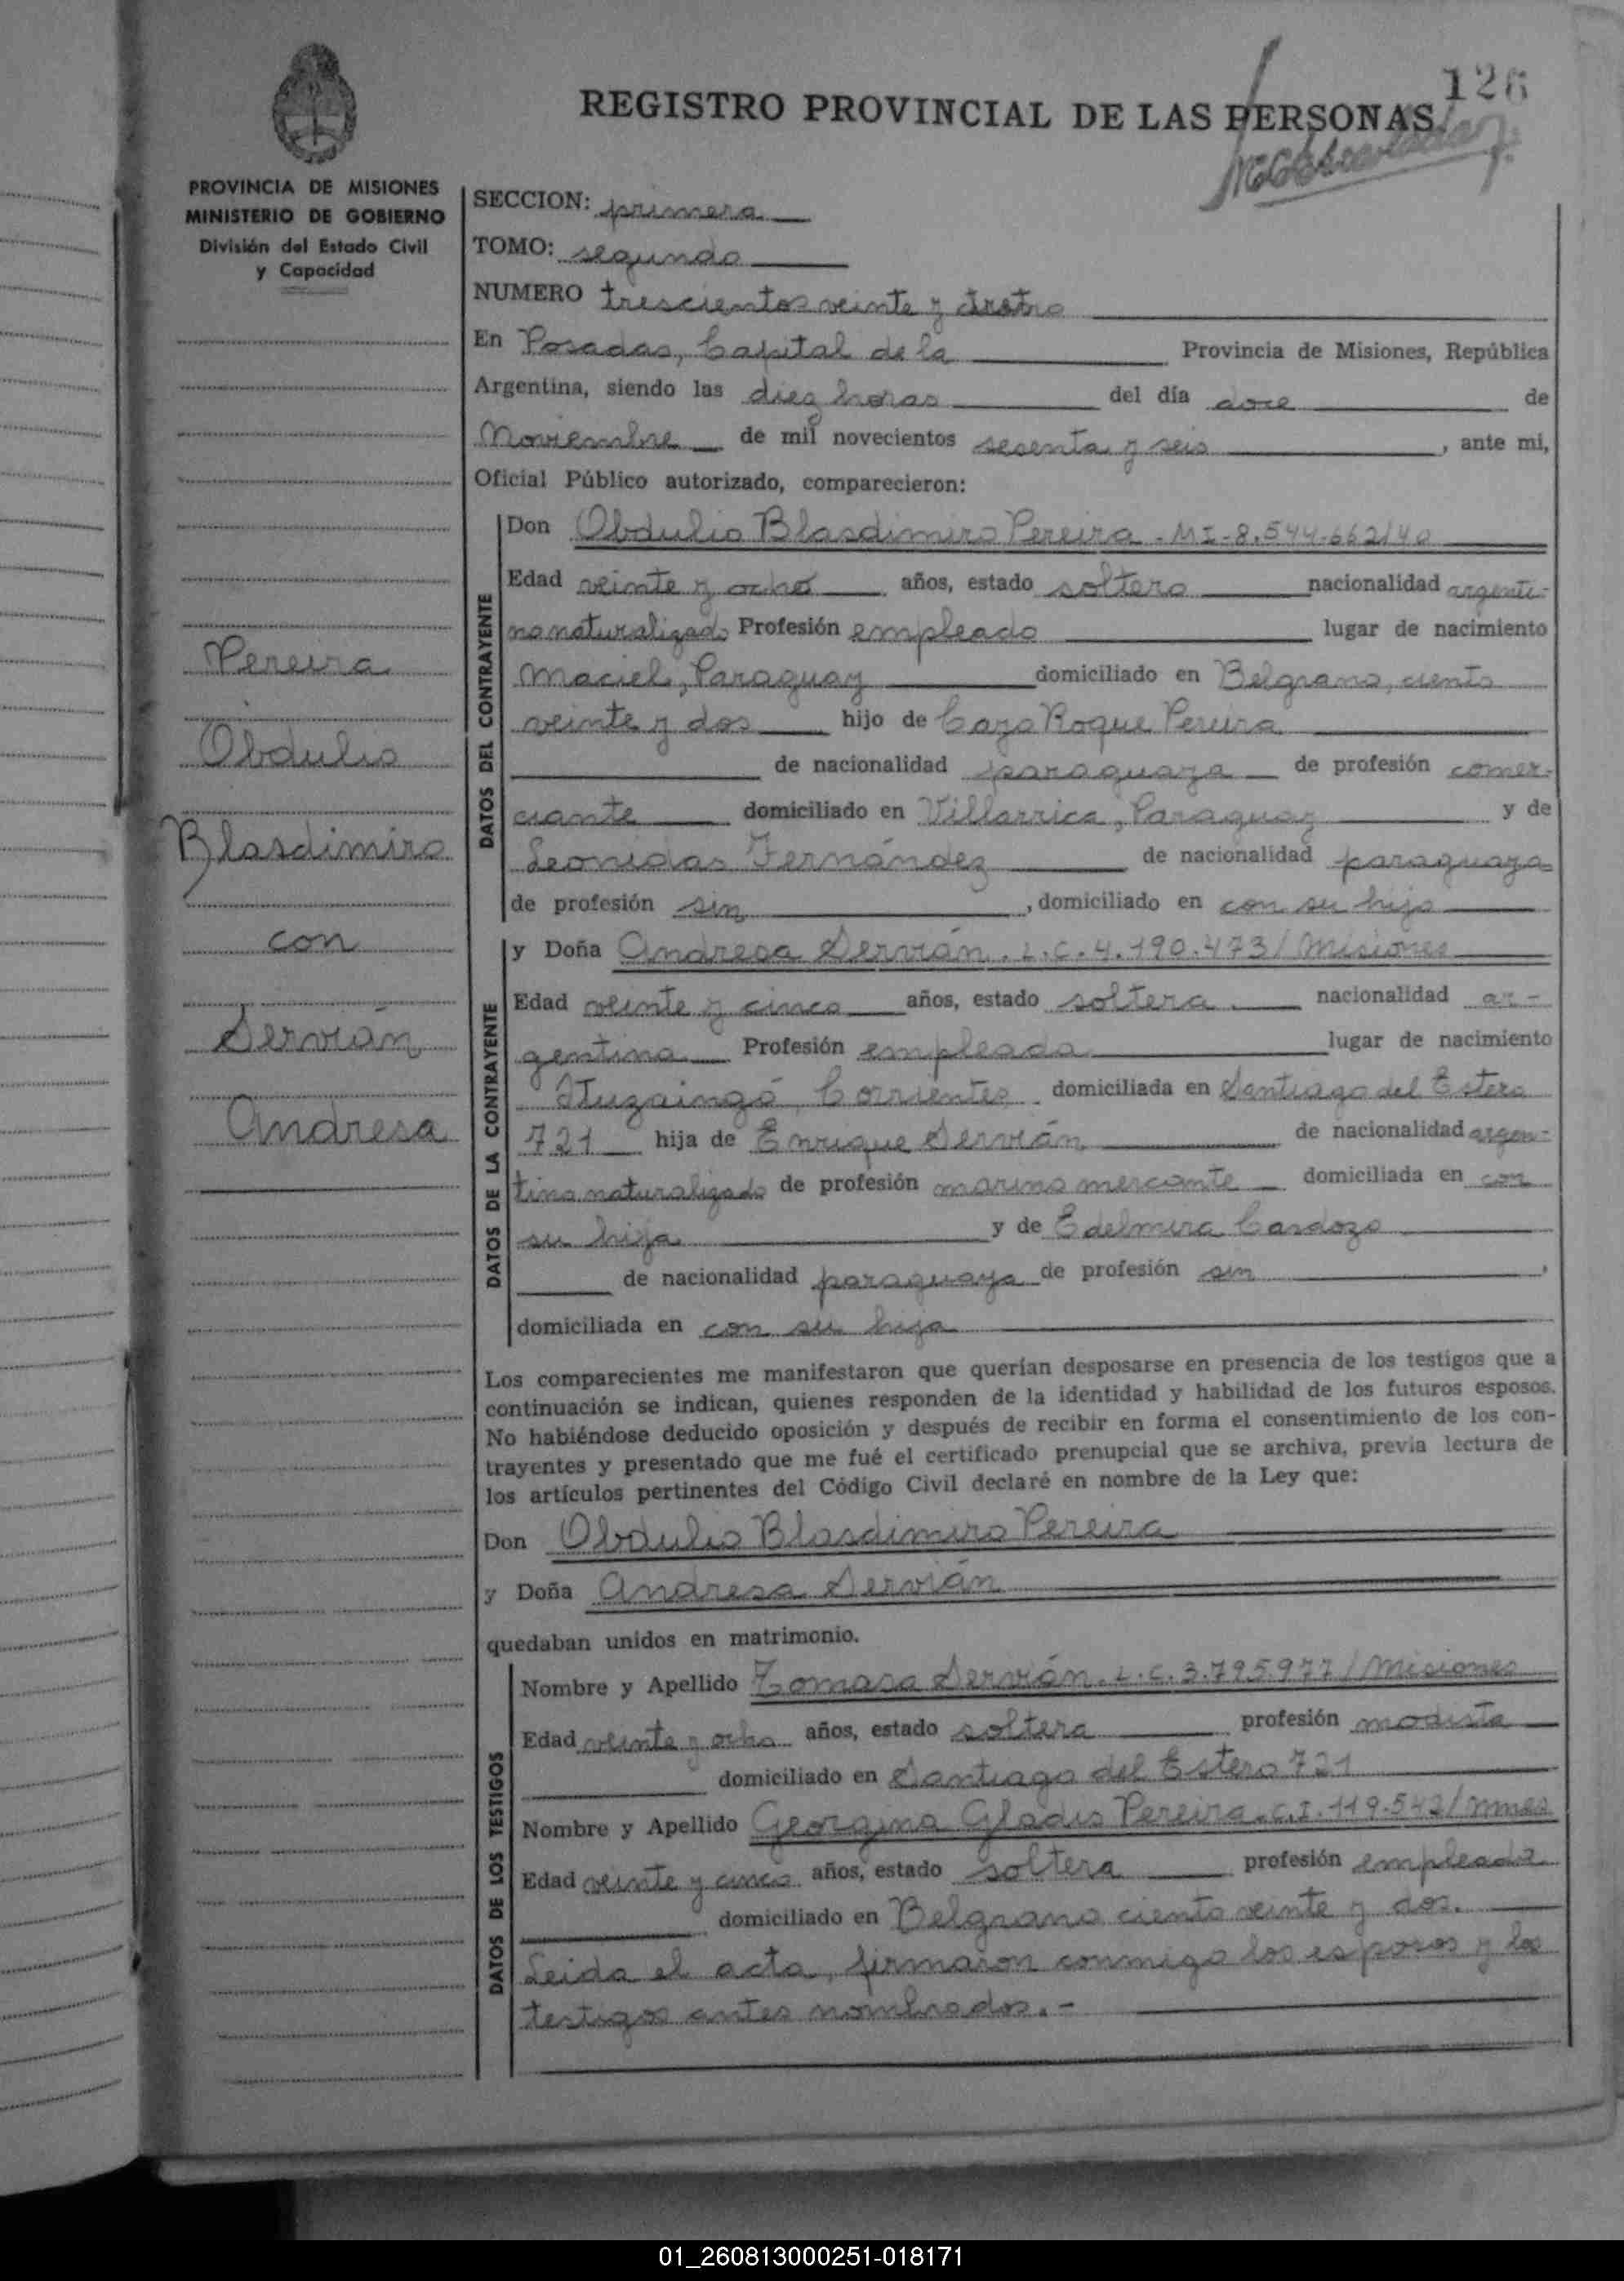 126
REGISTRO PROVINCIAL DE LAS PERSONAS
PROVINCIA DE MISIONES
MINISTERIO DE GOBIERNO
División del Estado Civil
y Capacidad
SECCION: primera
TOMO: segundo
NUMERO trescientos veinte y
En Posadas, Capital de la Provincia de Misiones, República
Argentina, siendo las diez horas del día doce de
Noviembre de mil novecientos sesenta y seis, ante mi,
Oficial Público autorizado, comparecieron:
DATOS DEL CONTRAYENTE
Don Obdulio Blasdimiro Pereira - MI-8.544.662/40
Edad veinte y ocho años, estado soltero nacionalidad argenti-
no naturalizado Profesión empleado lugar de nacimiento
Maciel, Paraguay domiciliado en Belgrano, ciento
veinte y dos hijo de Cayo Roque Pereira
de nacionalidad paraguaya de profesión comer-
ciante domiciliado en Villarrica, Paraguay y de
Leonidas Fernández de nacionalidad paraguaya
de profesión sin, domiciliado en con su hijo
DATOS DE LA CONTRAYENTE
y Doña Andresa Servián. L.C. 4.190.473/Misiones
Edad veinte y cinco años, estado soltera nacionalidad ar-
gentina Profesión empleada lugar de nacimiento
Ituzaingó, Corrientes domiciliada en Santiago del Estero
721 hija de Enrique Servián de nacionalidad argen-
tino naturalizado de profesión marino mercante domiciliada en con
su hija y de Edelmira Cardozo
de nacionalidad paraguaya de profesión sin,
domiciliada en con su hija
Los comparecientes me manifestaron que querían desposarse en presencia de los testigos que a
continuación se indican, quienes responden de la identidad y habilidad de los futuros esposos.
No habiéndose deducido oposición y después de recibir en forma el consentimiento de los con-
trayentes y presentado que me fué el certificado prenupcial que se archiva, previa lectura de
los artículos pertinentes del Código Civil declaré en nombre de la Ley que:
Don Obdulio Blasdimiro Pereira
y Doña Andresa Servián
quedaban unidos en matrimonio.
DATOS DE LOS TESTIGOS
Nombre y Apellido Tomasa Servián. L.C. 3.795.977/Misiones
Edad veinte y ocho años, estado soltera profesión modista
domiciliado en Santiago del Estero 721
Nombre y Apellido Georgina Gladis Pereira. C.I. 119.542/Mnes
Edad veinte y cinco años, estado soltera profesión empleada
domiciliado en Belgrano ciento veinte y dos.
Leida el acta, firmaron conmigo los esposos y los
testigos antes nombrados.-
Pereira
Obdulio
Blasdimiro
con
Servián
Andresa
01_260813000251-018171